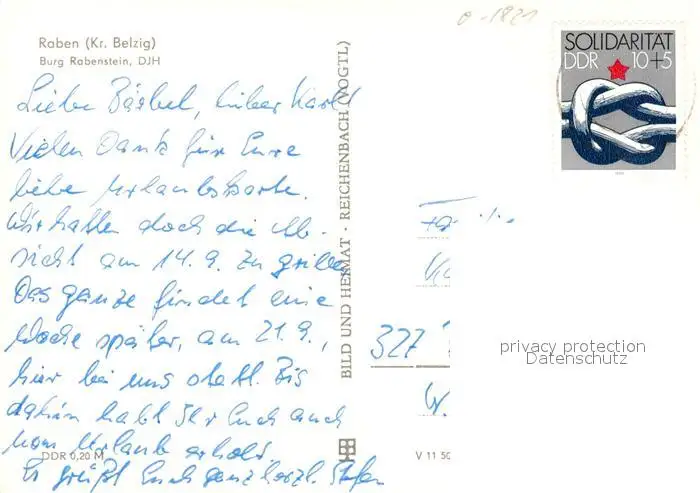 o-1821
Raben (Kr. Belzig)
Burg Rabenstein, DJH
SOLIDARITÄT
DDR 10+5
Liebe Bärbel, lieber Karl
Vielen Dank für Eure
liebe Urlaubskarte.
Wir hatten doch die Ab-
sicht am 14.9. zu grillen
Das ganze findet eine
Woche später, am 21.9.,
hier bei uns statt. Bis
dahin habt Ihr Euch auch
vom Urlaub erholt.
Es grüßt Euch ganz herzl. Stefan
DDR 0,20 M
BILD UND HEIMAT · REICHENBACH (VOGTL)
327
V 11 50
privacy protection
Datenschutz